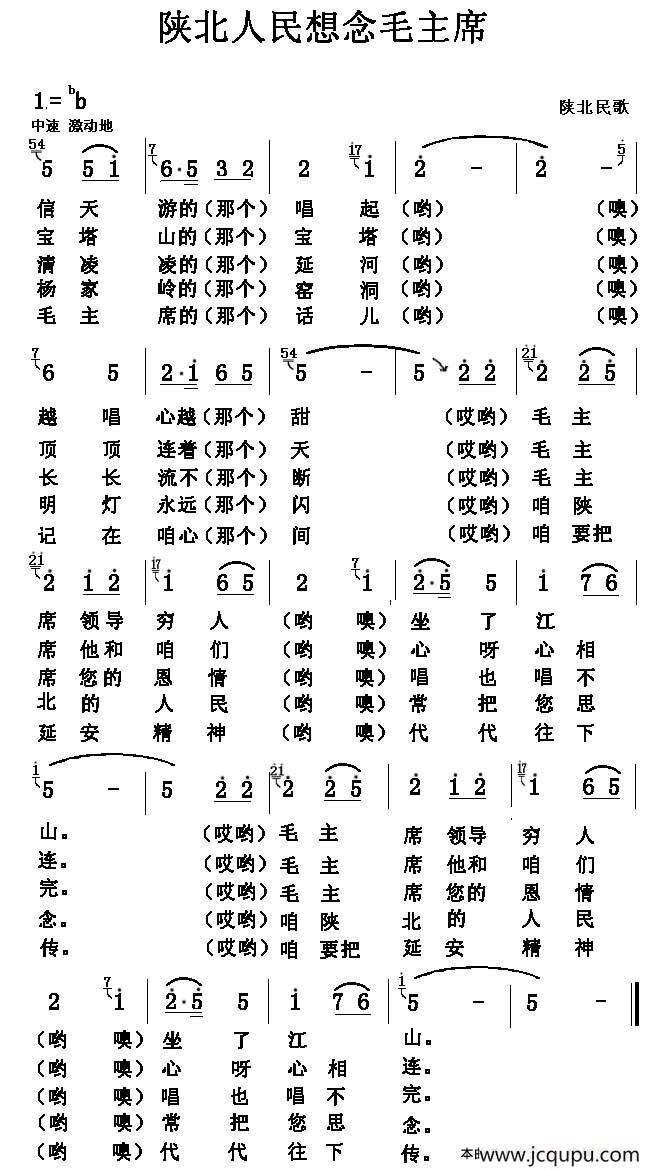 陕北人民想念毛主席
1.= ᵇb
陕北民歌
中速 激动地
54 5 5 1̇ | 7 6·5 3 2 | 2 1̇7 1̇ | 2̇ - | 2̇ - 5̇ |
信天 游的(那个) 唱起 (哟) (噢)
宝塔 山的(那个) 宝塔 (哟) (噢)
清凌 凌的(那个) 延河 (哟) (噢)
杨家 岭的(那个) 窑洞 (哟) (噢)
毛主 席的(那个) 话儿 (哟) (噢)
7 6 5 | 2̇·1̇ 6 5 | 54 5 - | 5 2̇ 2̇ | 2̇1̇ 2̇ 2̇ 5 |
越唱 心越(那个) 甜 (哎哟) 毛主
顶顶 连着(那个) 天 (哎哟) 毛主
长长 流不(那个) 断 (哎哟) 毛主
明灯 永远(那个) 闪 (哎哟) 咱陕
记在 咱心(那个) 间 (哎哟) 咱要把
2̇1̇ 2̇ 1̇ 2̇ | 1̇7 1̇ 6 5 | 2 7 1̇ | 2̇·5 5 | 1̇ 7 6 |
席领导 穷人 (哟 噢) 坐了 江
席他和 咱们 (哟 噢) 心呀 心相
席您的 恩情 (哟 噢) 唱也 唱不
北的 人民 (哟 噢) 常把 您思
延安 精神 (哟 噢) 代代 往下
1̇ 5 - | 5 2̇ 2̇ | 2̇1̇ 2̇ 2̇ 5 | 2̇ 1̇ 2̇ | 1̇7 1̇ 6 5 |
山。 (哎哟) 毛主 席领导 穷人
连。 (哎哟) 毛主 席他和 咱们
完。 (哎哟) 毛主 席您的 恩情
念。 (哎哟) 咱陕 北的 人民
传。 (哎哟) 咱要把 延安 精神
2 7 1̇ | 2̇·5 5 | 1̇ 7 6 | 1̇ 5 - | 5 - ‖
(哟 噢) 坐了 江 山。
(哟 噢) 心呀 心相 连。
(哟 噢) 唱也 唱不 完。
(哟 噢) 常把 您思 念。
(哟 噢) 代代 往下 传。
www.jcqupu.com